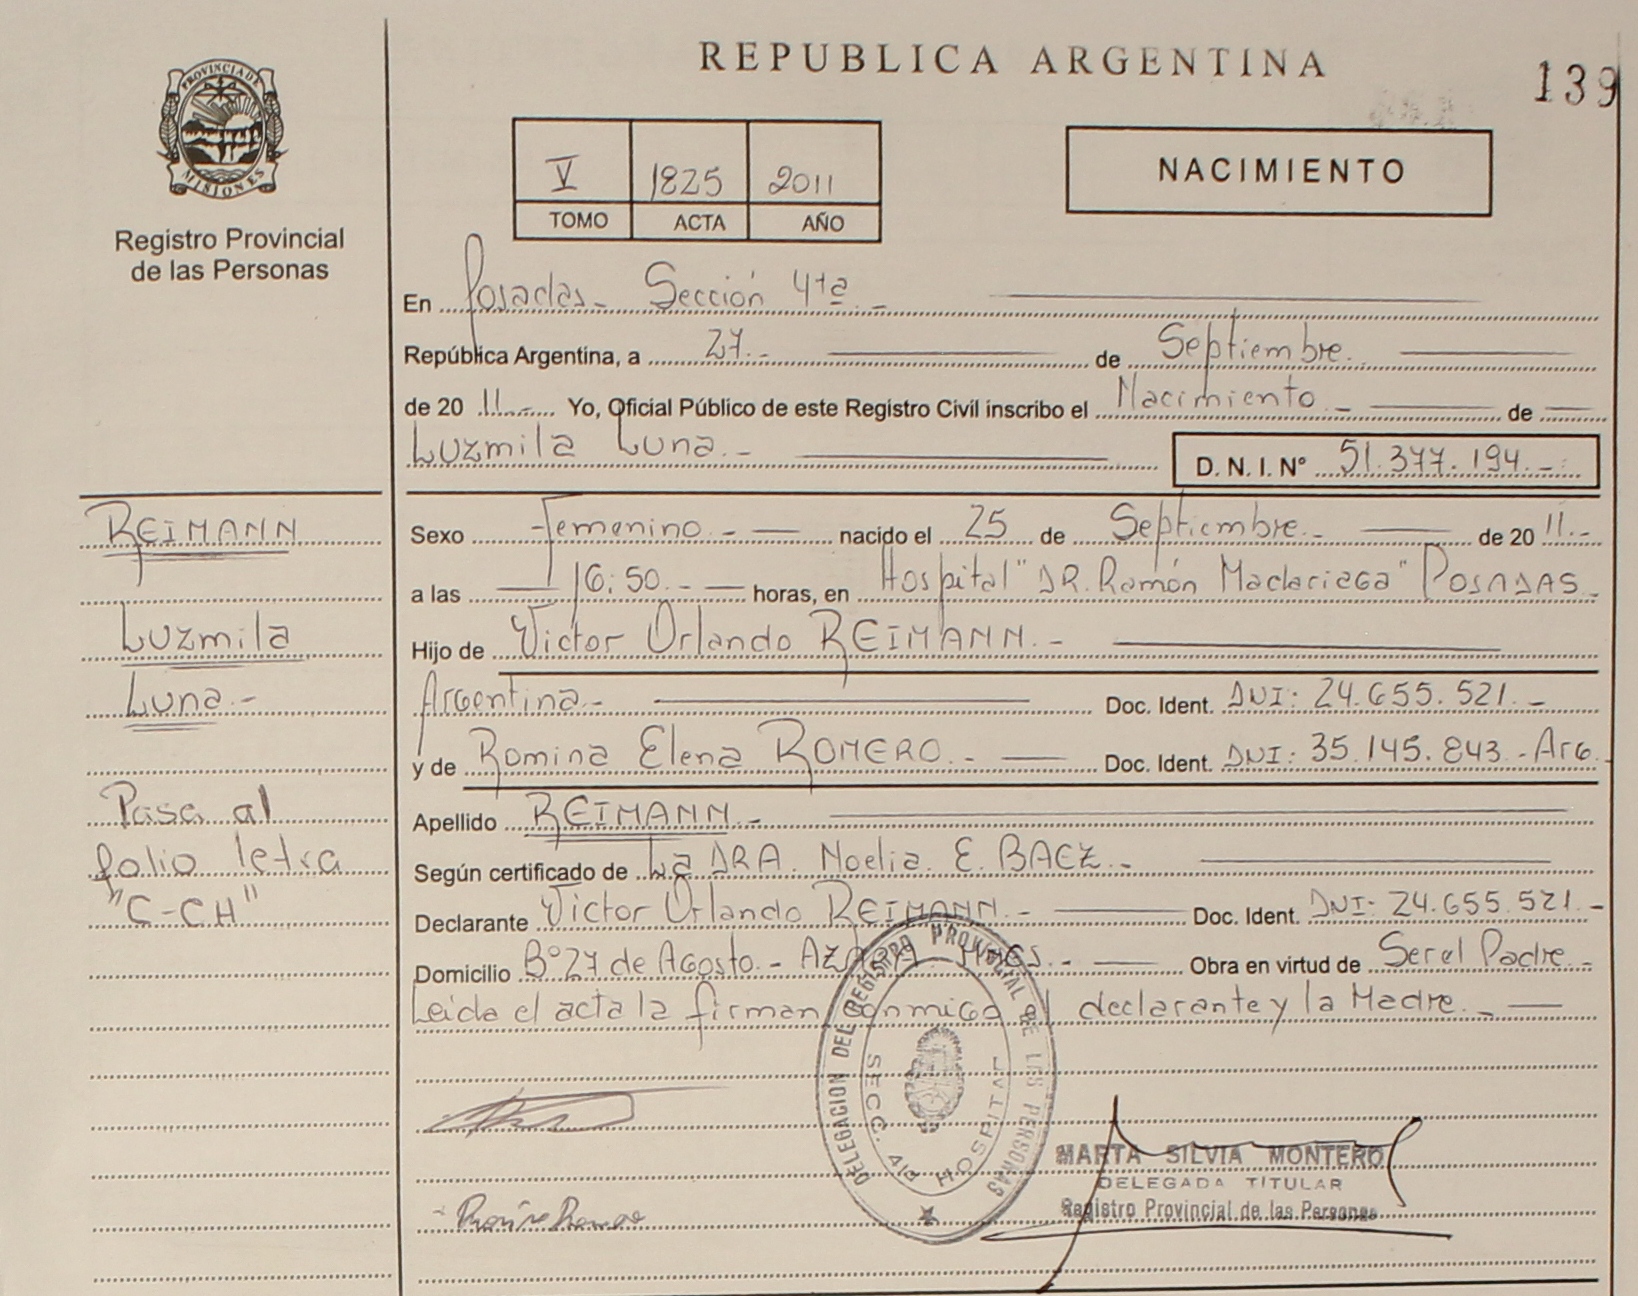 REPUBLICA ARGENTINA
139
PROVINCIA DE
MISIONES
Registro Provincial
de las Personas
V 1825 2011
TOMO ACTA AÑO
NACIMIENTO
En Posadas- Sección 4ta -
República Argentina, a 27.- de Septiembre.
de 20 11.- Yo, Oficial Público de este Registro Civil inscribo el Nacimiento - de
Luzmila Luna.- D. N. I. N° 51.377.194.-
REIMANN
Luzmila
Luna.-
Pasa al
folio letra
"C-CH"
Sexo Femenino.- nacido el 25 de Septiembre.- de 20 11.-
a las 16:50.- horas, en Hospital "DR. Ramón Madariaga" POSADAS.
Hijo de Victor Orlando REIMANN.-
Argentina.- Doc. Ident. DNI: 24.655.521.-
y de Romina Elena ROMERO.- Doc. Ident. DNI: 35.145.843.-ArG.
Apellido REIMANN.-
Según certificado de La DRA. Noelia. E. BAEZ.-
Declarante Victor Orlando REIMANN.- Doc. Ident. DNI: 24.655.521.-
Domicilio B° 27 de Agosto.- AZARA. Mnes.- Obra en virtud de Ser el Padre.-
Leida el acta la firman conmigo el declarante y la Madre.-
DELEGACION DEL REGISTRO PROVINCIAL DE LAS PERSONAS
SECC. 4ta HOSPITAL
MARTA SILVIA MONTERO
DELEGADA TITULAR
Registro Provincial de las Personas